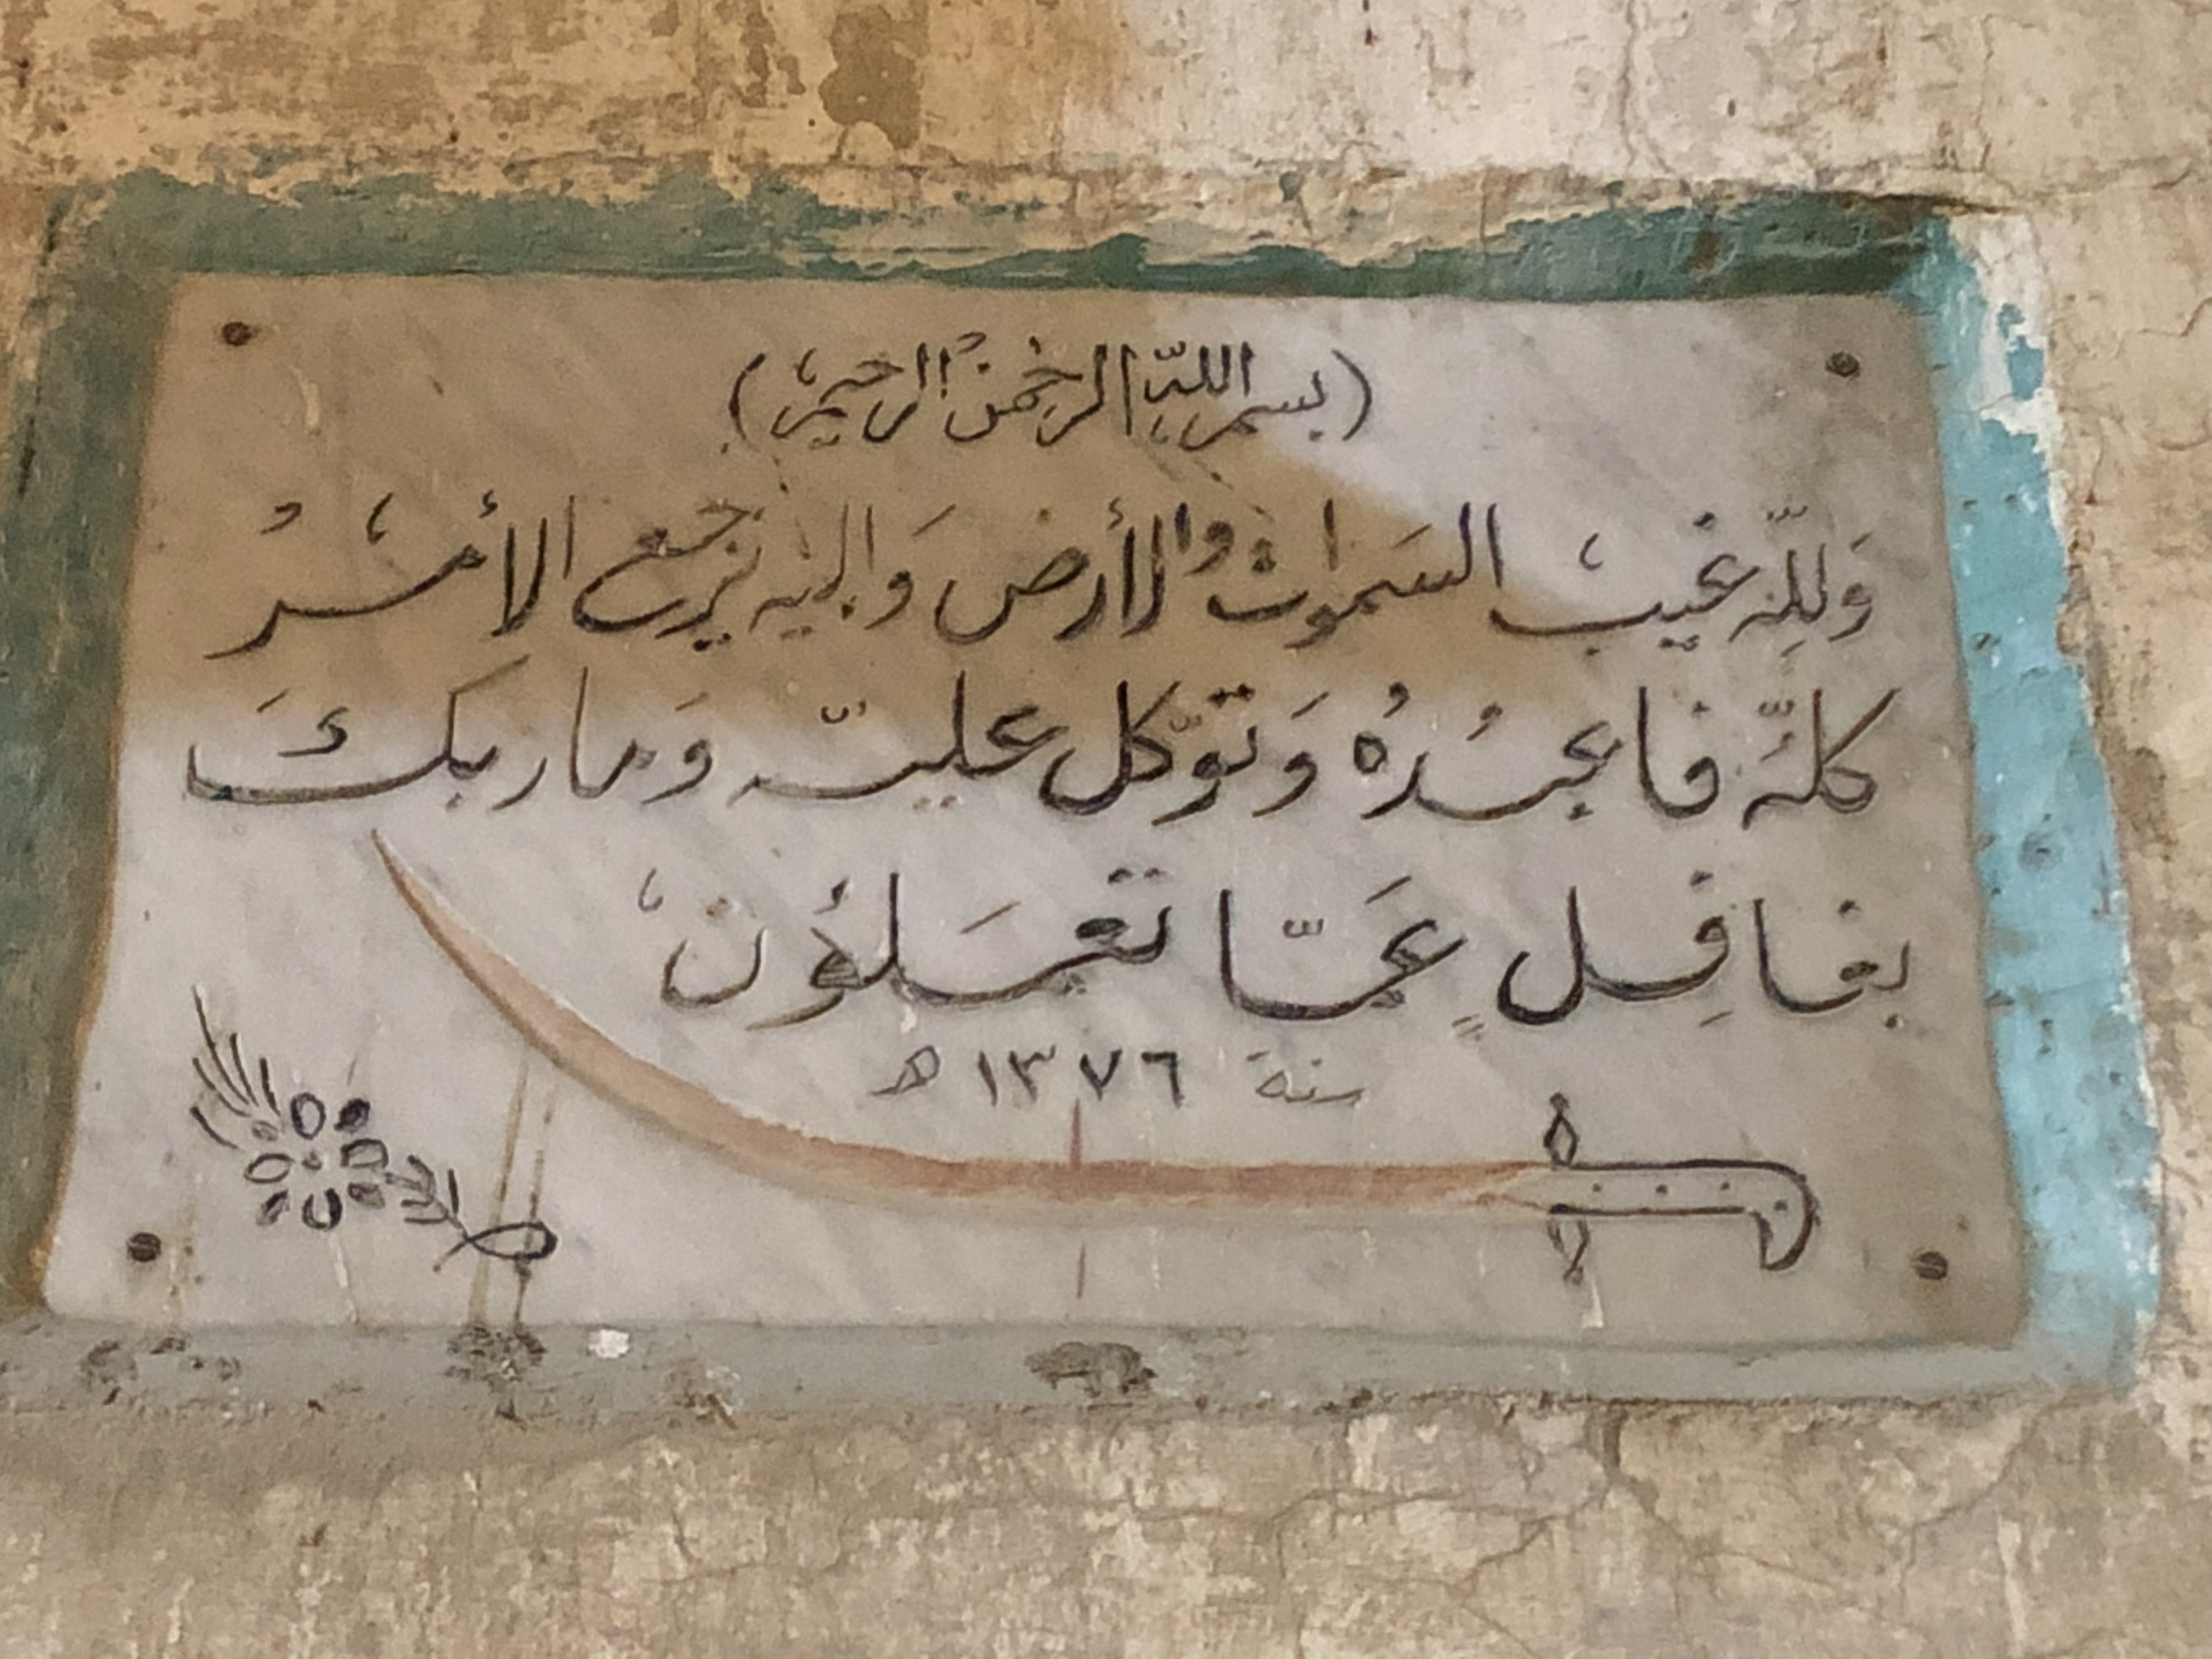 (بسم اللّه الرحمٰن الرحيم)
وَللّه غيب السمٰوات والأرض وَاليه يرجع الأمرُ
كلهُّ فاعبُدهُ وَتوّكل عليه وَما ربكَ
بغافِلٍ عَمّا تعمَلوُن
سنة ١٣٧٦ ه